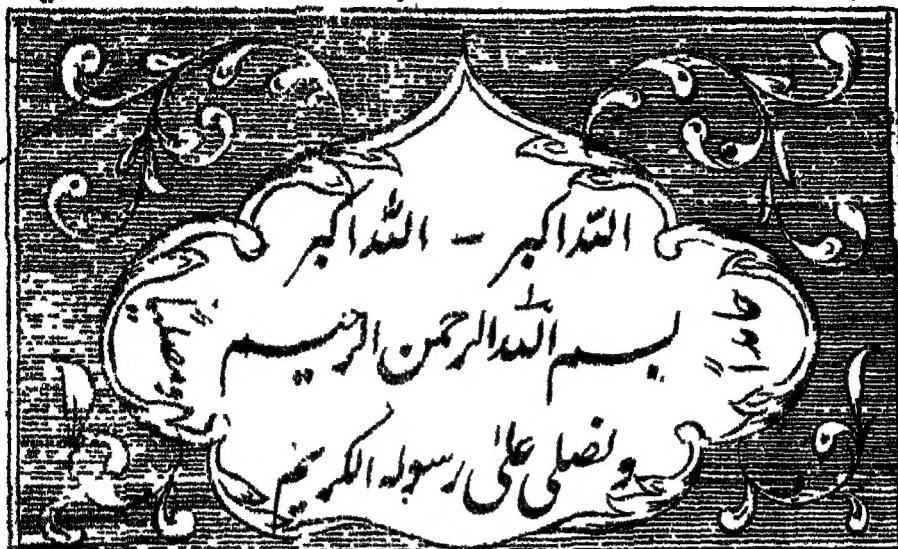 اللہ اکبر – اللہ اکبر
بسم اللہ الرحمن الرحیم
ونصلی علیٰ رسولہ الکریم